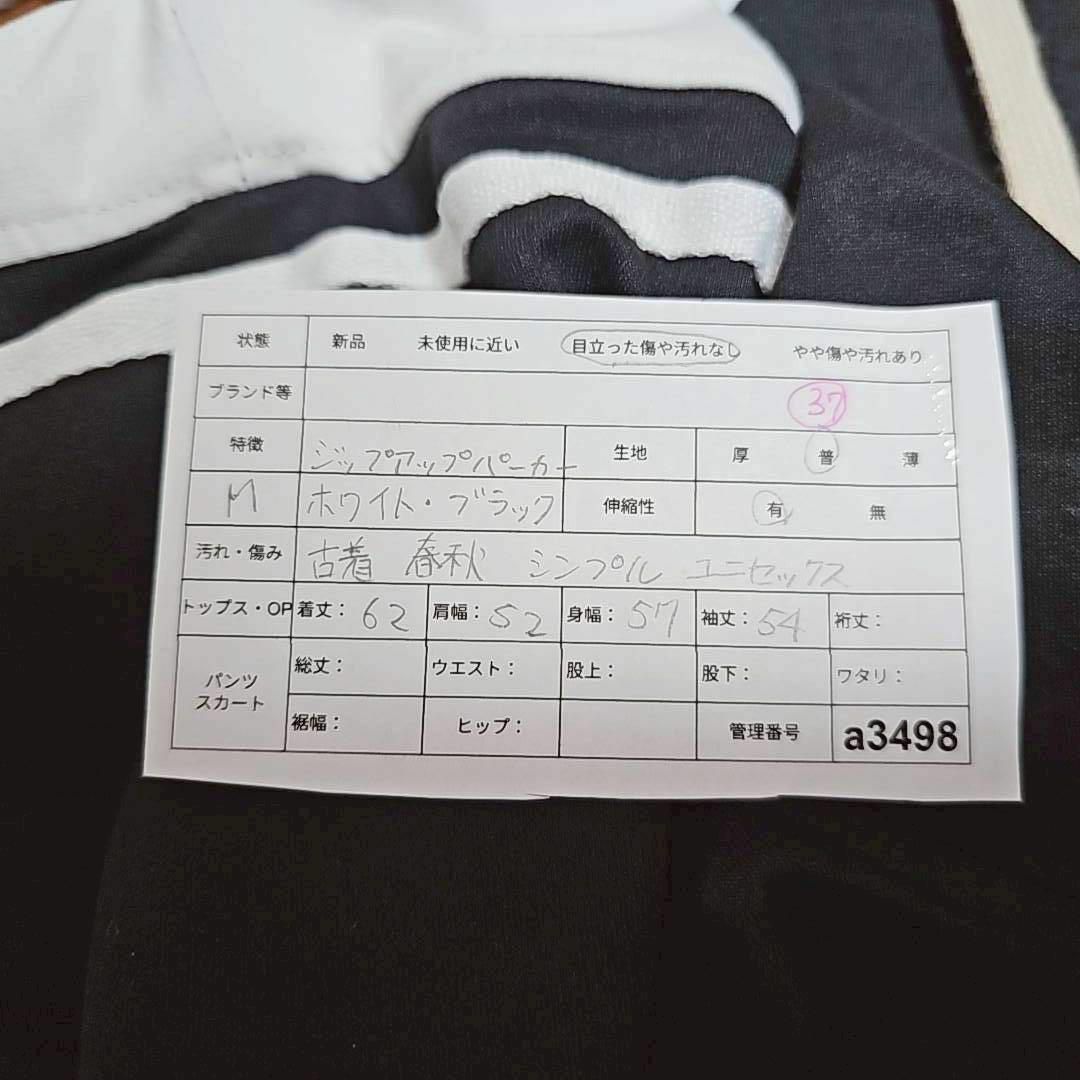 状態 新品 未使用に近い 目立った傷や汚れなし やや傷や汚れあり
ブランド等 37
特徴 ジップアップパーカー 生地 厚 普 薄
M ホワイト・ブラック 伸縮性 有 無
汚れ・傷み 古着 春秋 シンプル ユニセックス
トップス・OP 着丈：62 肩幅：52 身幅：57 袖丈：54 裄丈：
パンツ スカート 総丈： ウエスト： 股上： 股下： ワタリ：
裾幅： ヒップ： 管理番号 a3498